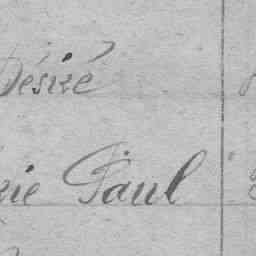 Désiré
rie Paul